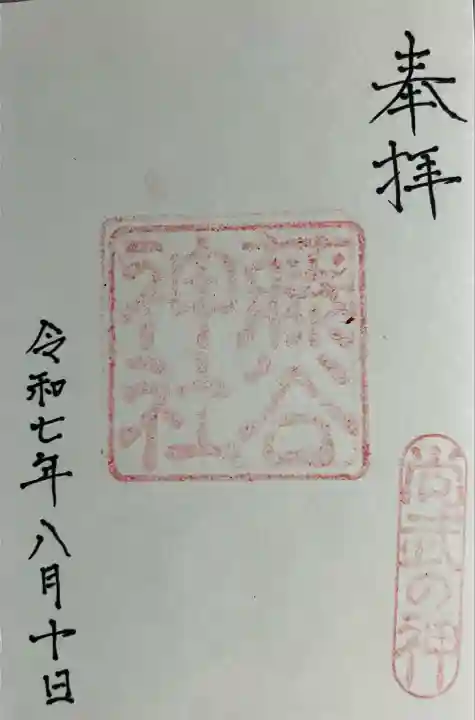 奉拝
公
神社
尚武の神
令和七年八月十日